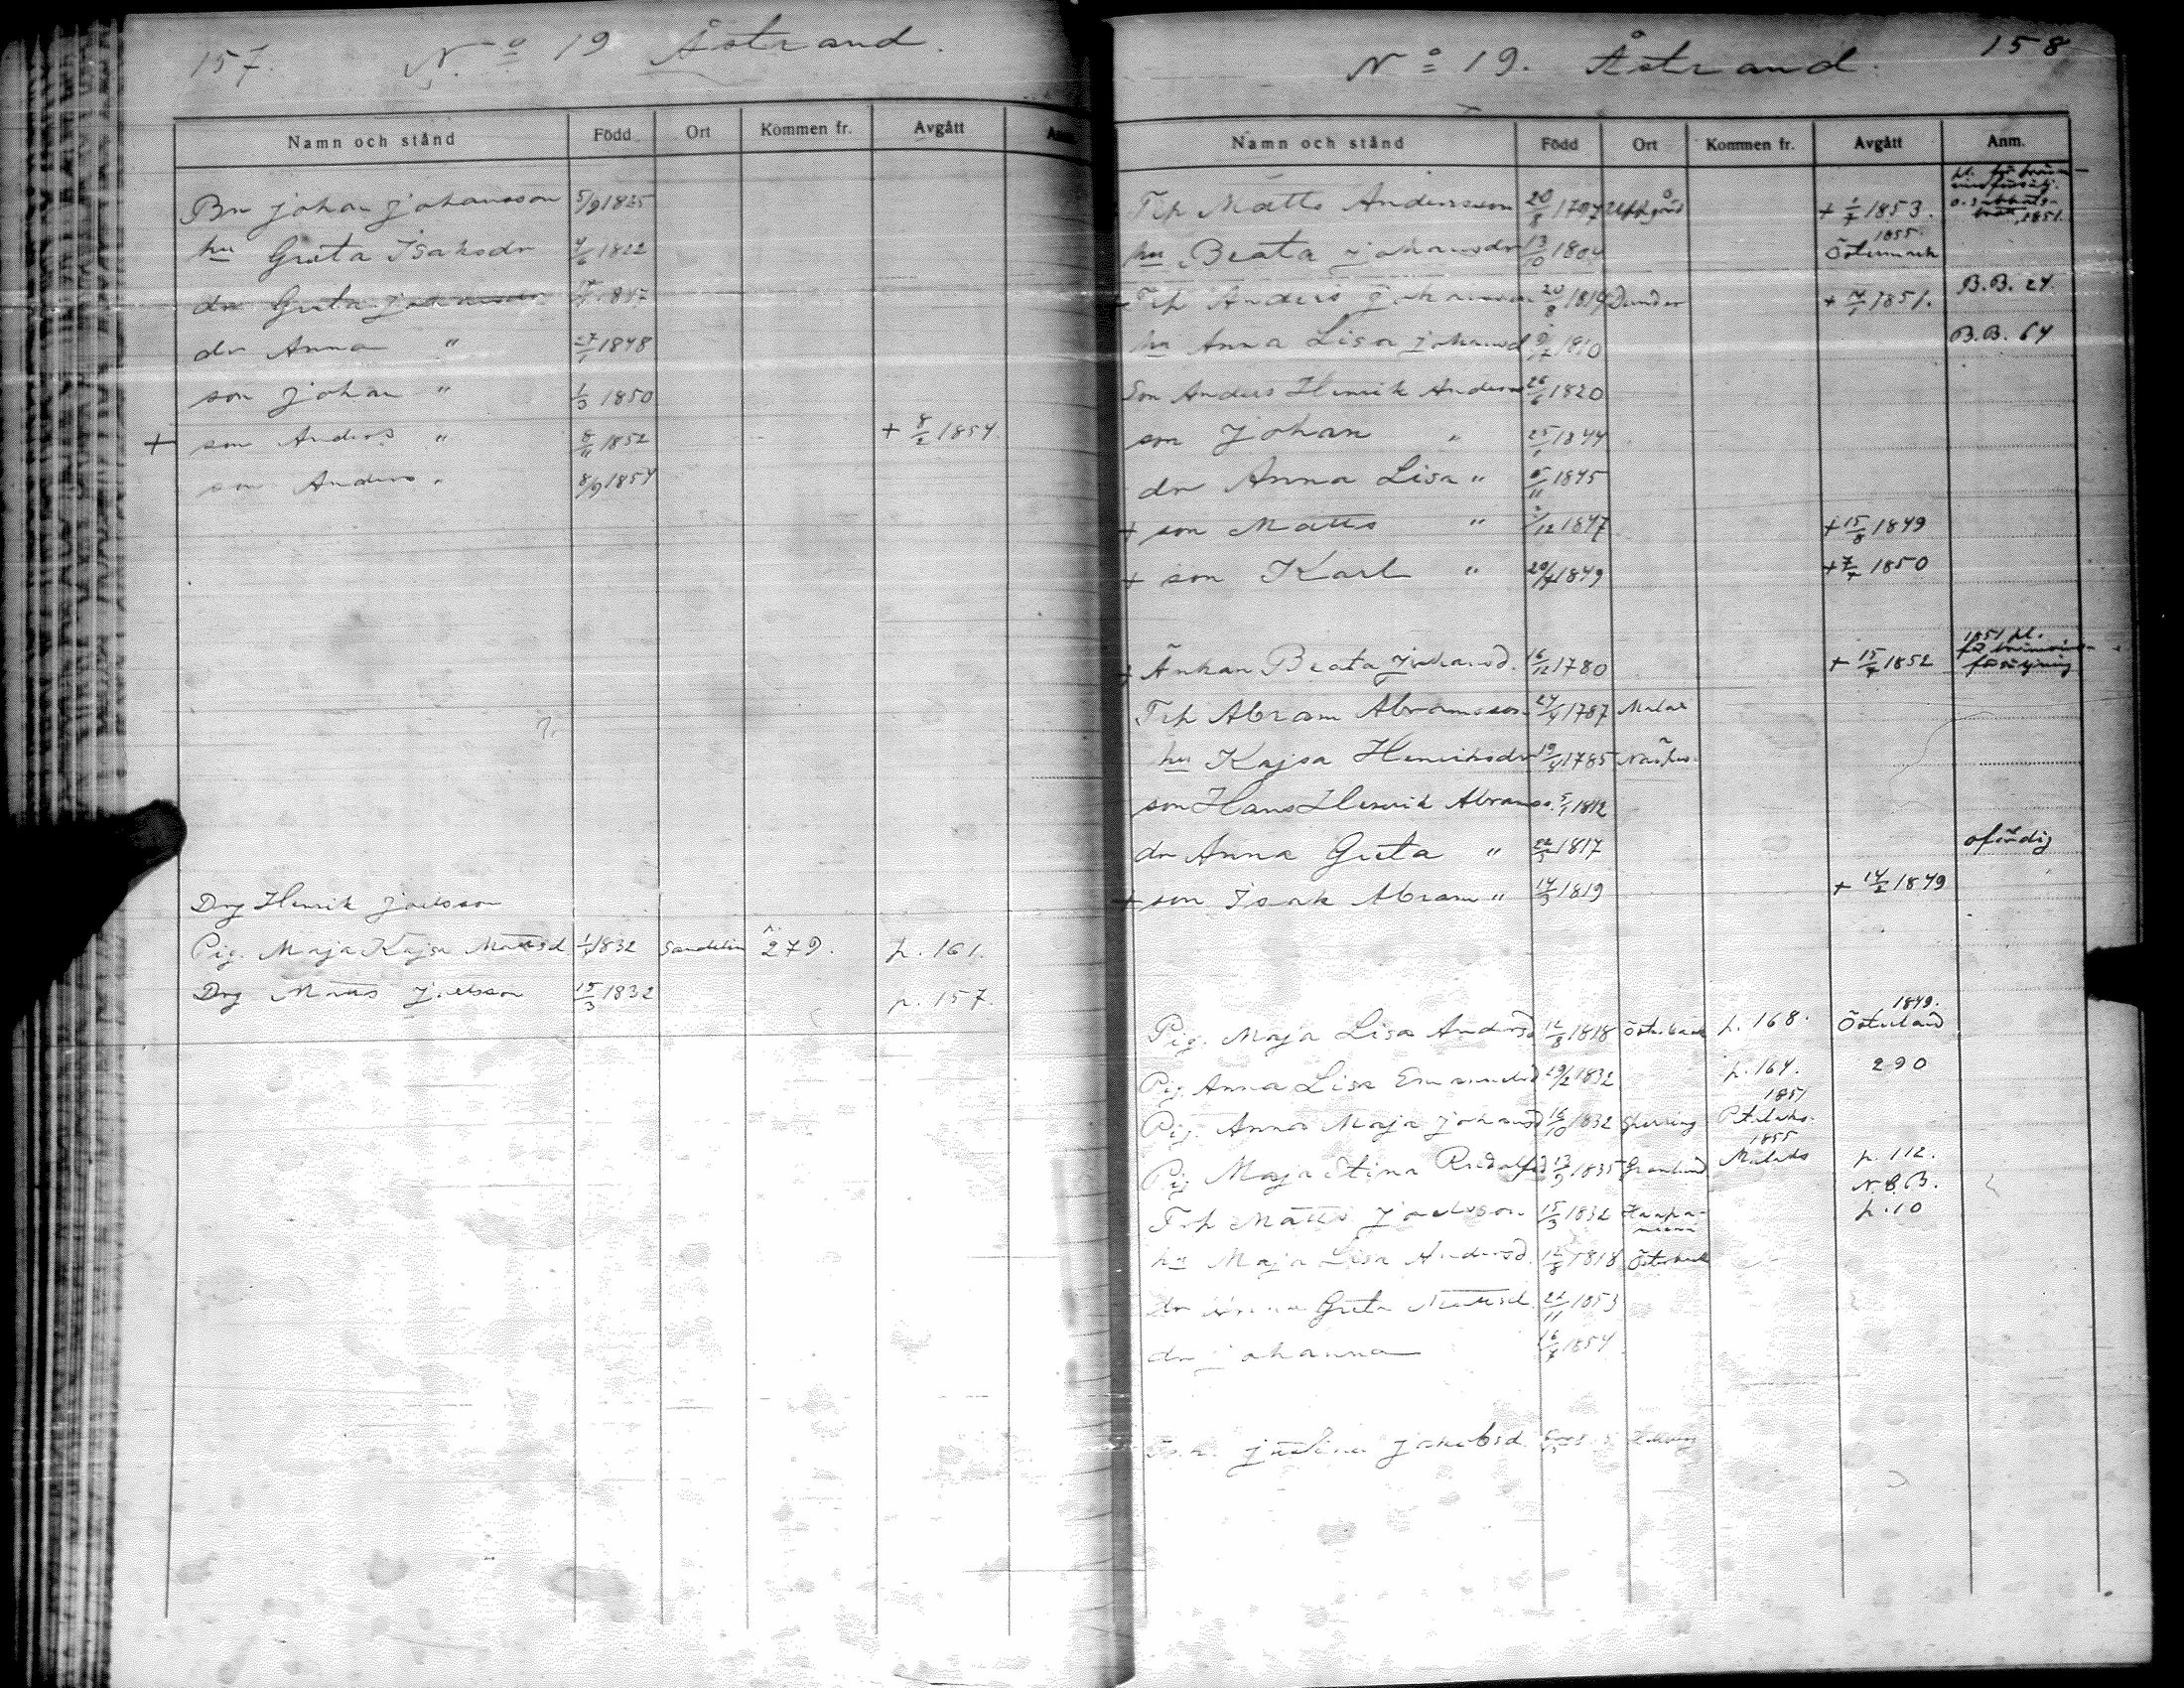 157. No 19 Åstrand.
Namn och stånd Född Ort Kommen fr. Avgått Anm.
Bn Johan Johansson 5/9 1825
hu Greta Isaksdr 4/6 1822
dr Greta Johansdr 1847
dr Anna " 27/1 1848
son Johan " 1/3 1850
+ son Anders " 8/11 1852 + 8/2 1854.
son Anders " 8/9 1854
Drg Henrik Joelsson
Pig. Maja Kajsa Mattsd. 1832 Sandelin 279. p. 161.
Drg Matts Joelsson 15/3 1832 p. 157.
No 19. Åstrand. 158
Namn och stånd Född Ort Kommen fr. Avgått Anm.
Trp Matts Andersson 20/8 1797 Uppgård + 1853. 1851.
hu Beata Johansdr 13/10 1804 1855 Östermark
+ Trp Anders Johansson 20/8 1819 Dunder + 1851. B.B. 24.
hu Anna Lisa Johansd 1810 B.B. 64
Son Anders Henrik Anderss 26/6 1820
son Johan " 25/1 1844
dr Anna Lisa " 5/11 1845
+ son Matts " /12 1847 + 15/8 1849
+ son Karl " 1849 + 7/7 1850
+ Änkan Beata Johansd. 16/12 1780 + 15/7 1852 1851 pl. för brännvins- försäljning
Trp Abram Abramsson 24/4 1787 Malax
hu Kajsa Henriksdr 19/8 1785 Närpes.
son Hans Henrik Abramss. 5/1 1812
dr Anna Greta " 22/3 1817 ofärdig
+ son Isak Abram " 14/3 1819 + 14/2 1849
Pig. Maja Lisa Andersd 12/8 1818 Österback p. 168. 1849. Österland
Pig. Anna Lisa Emanuelsd 29/2 1832 p. 164. 290
Pig. Anna Maja Johansd 16/10 1832 1851 Petalaks.
Pig Maja Stina Rudolfsd 13/9 1835 Granlund 1855 Malaks p. 112.
Trp Matts Joelsson 15/3 1832 Haapaniemi N.B.B. p. 10
hu Maja Lisa Andersd. 12/8 1818 Österback
dr Anna Greta Mattsd. 22/11 1853
dr Johanna 16/7 1854
Justina Jakobsd.